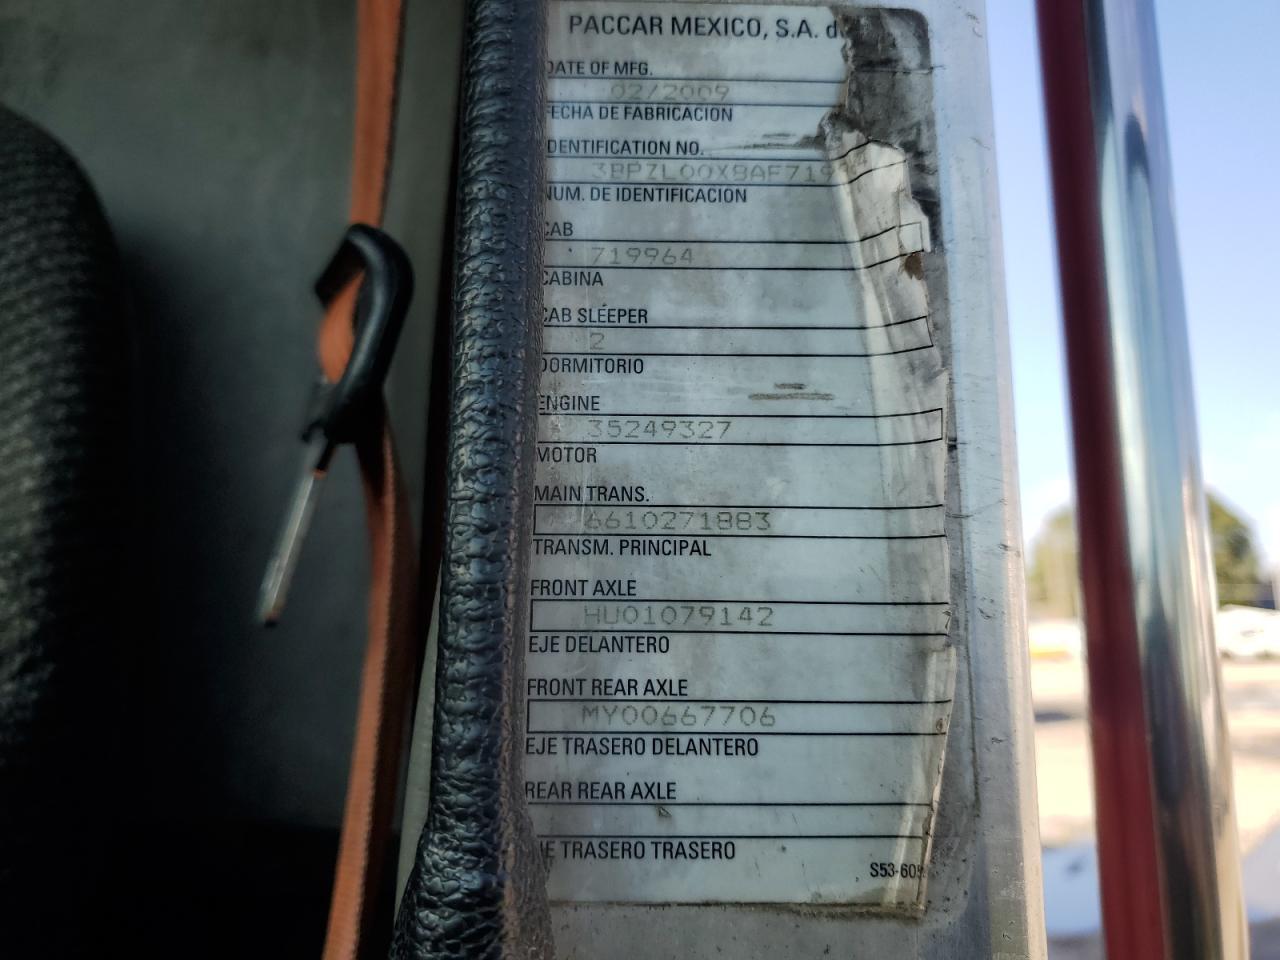 PACCAR MEXICO, S.A. d
DATE OF MFG.
02/2009
FECHA DE FABRICACION
IDENTIFICATION NO.
3BPZL00X8AF719
NUM. DE IDENTIFICACION
CAB
719964
CABINA
CAB SLEEPER
2
DORMITORIO
ENGINE
35249327
MOTOR
MAIN TRANS.
6610271883
TRANSM. PRINCIPAL
FRONT AXLE
HU01079142
EJE DELANTERO
FRONT REAR AXLE
MY00667706
EJE TRASERO DELANTERO
REAR REAR AXLE
EJE TRASERO TRASERO
S53-60